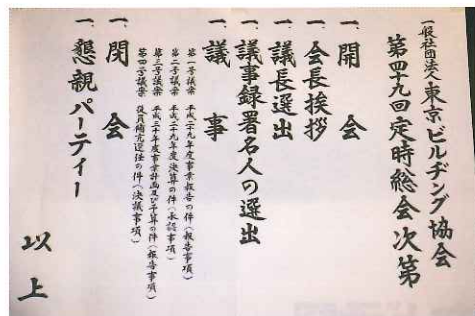 一般社団法人東京ビルヂング協会
第四十九回定時総会次第
一、開会
一、会長挨拶
一、議長選出
一、議事録署名人の選出
一、議事
第一号議案 平成二十九年度事業報告の件(報告事項)
第二号議案 平成二十九年度決算の件(承認事項)
第三号議案 平成三十年度事業計画及び予算の件(報告事項)
第四号議案 役員補充選任の件(決議事項)
一、閉会
一、懇親パーティー
以上